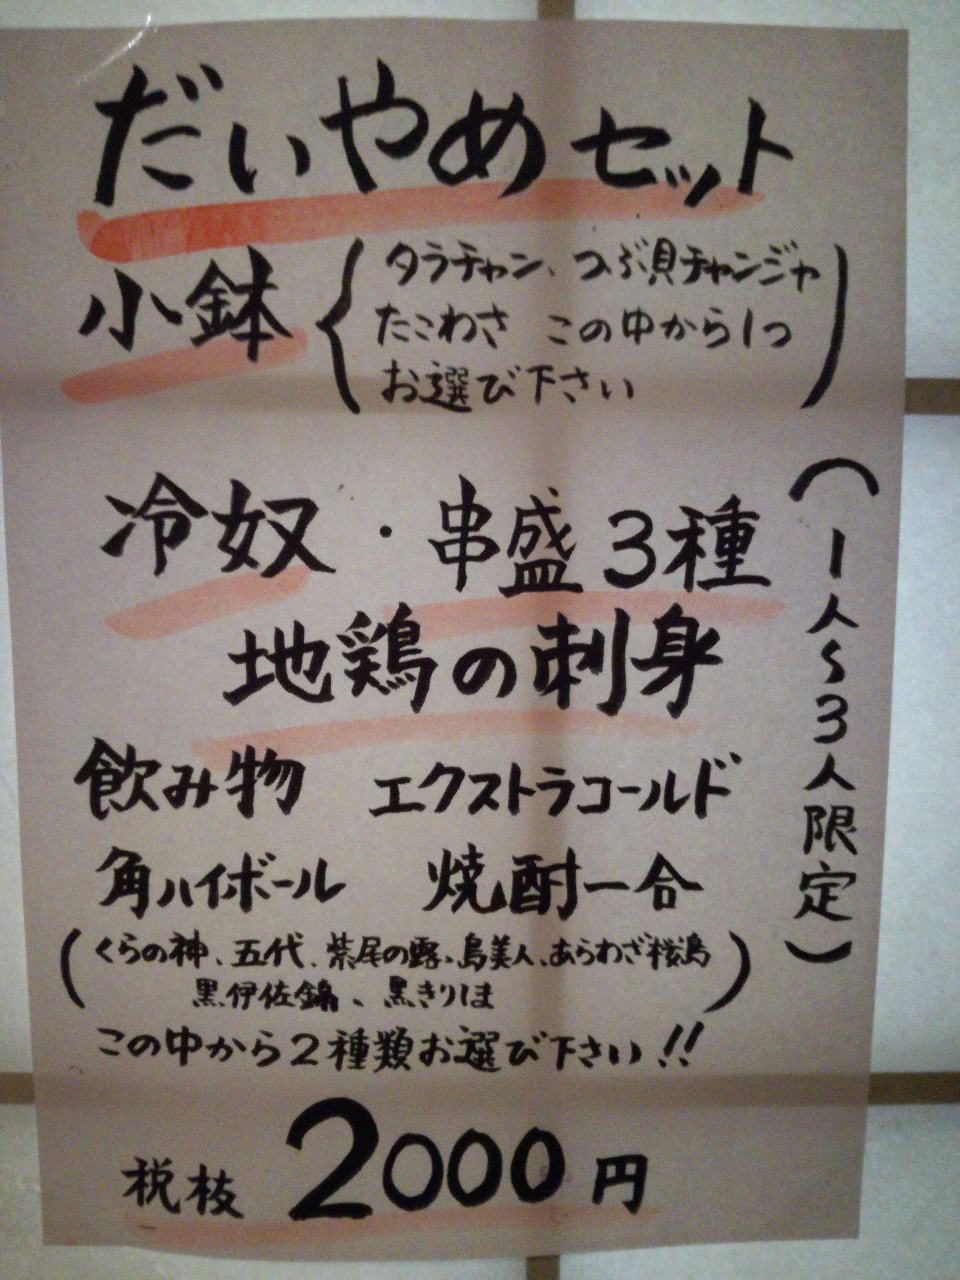 だいやめセット
小鉢
タラチャン、つぶ貝チャンジャ
たこわさ この中から1つ
お選び下さい
冷奴・串盛3種
地鶏の刺身
(1人~3人限定)
飲み物 エクストラコールド
角ハイボール 焼酎一合
(くらの神、五代、紫尾の露、島美人、あらわざ桜島
黒伊佐錦、黒きりしま)
この中から2種類お選び下さい!!
税抜 2000円